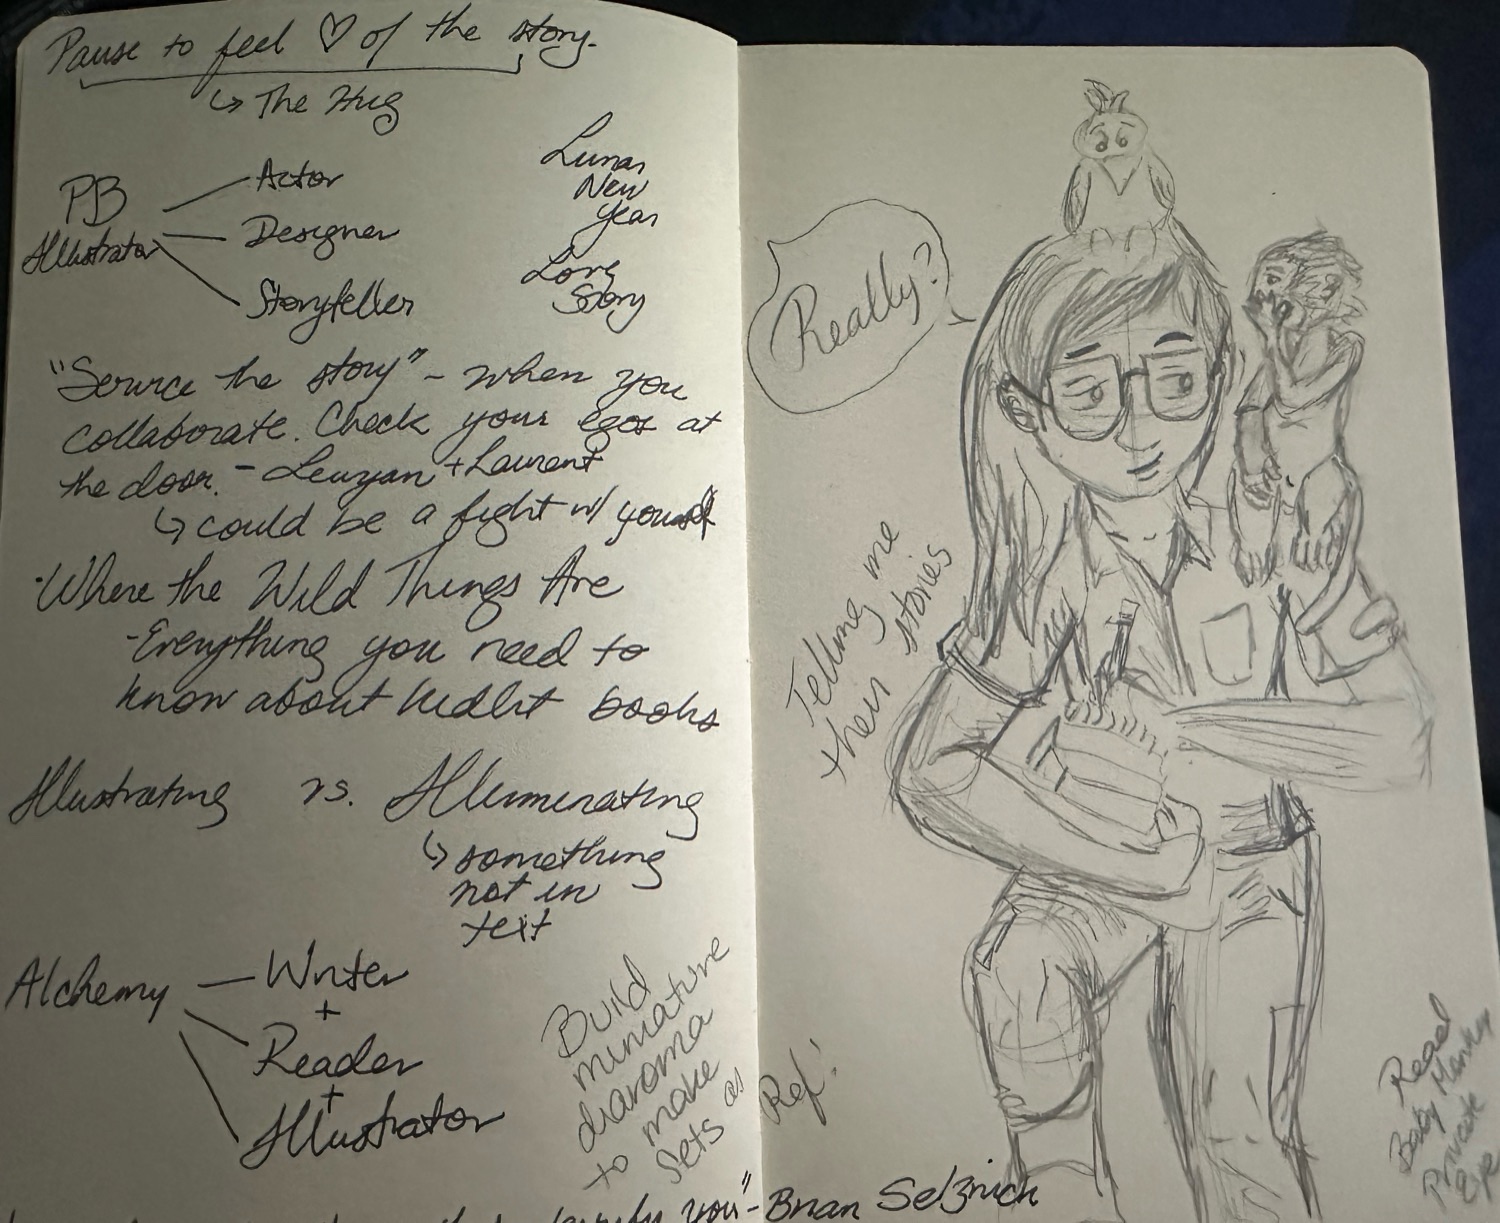 Pause to feel ♡ of the story.
↳ The Hug
PB
Illustrator
Actor
Designer
Storyteller
Lunar
New
Year
Love
Story
"Service the story" - when you
collaborate. Check your egos at
the door. - Leuyen + Laurent
↳ could be a fight w/ yourself
·Where the Wild Things Are
-Everything you need to
know about kidlit books
Illustrating vs. Illuminating
↳ something
not in
text
Alchemy — Writer
+
Reader
+
Illustrator
Build
miniature
diaroma
to make
sets as
Ref!
you" - Brian Selznick
Really?
Telling me
their stories
Read
Baby Monkey
Private
Eye